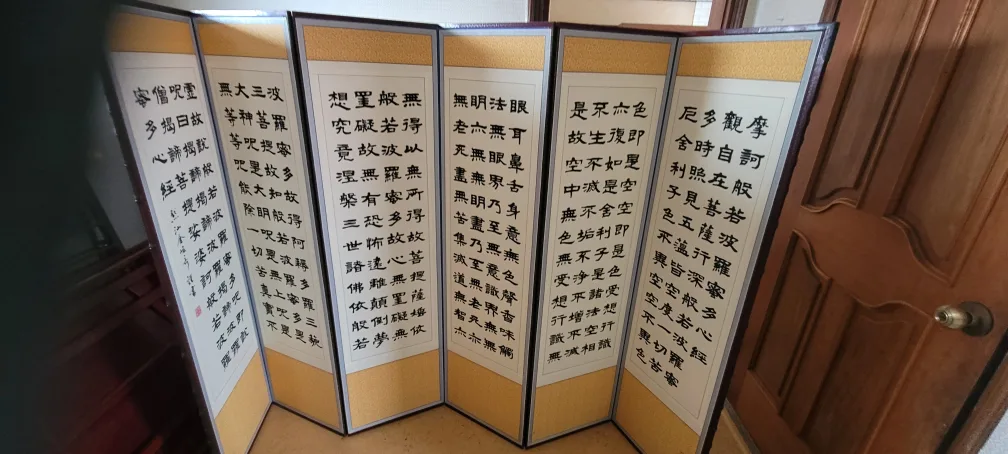 摩訶般若波羅蜜多心經
觀自在菩薩行深般若波羅蜜
多時照見五蘊皆空度一切苦
厄舍利子色不異空空不異色
色即是空空即是色受想行識
亦復如是舍利子是諸法空相
不生不滅不垢不淨不增不減
是故空中無色無受想行識無
眼耳鼻舌身意無色聲香味觸
法無眼界乃至無意識界無無
明亦無無明盡乃至無老死亦
無老死盡無苦集滅道無智亦
無得以無所得故菩提薩埵依
般若波羅蜜多故心無罣礙無
罣礙故無有恐怖遠離顛倒夢
想究竟涅槃三世諸佛依般若
波羅蜜多故得阿耨多羅三藐
三菩提故知般若波羅蜜多是
大神呪是大明呪是無上呪是
無等等呪能除一切苦眞實不
虛故說般若波羅蜜多呪即說
呪曰揭諦揭諦波羅揭諦波羅
僧揭諦菩提娑婆訶般若波羅
蜜多心經